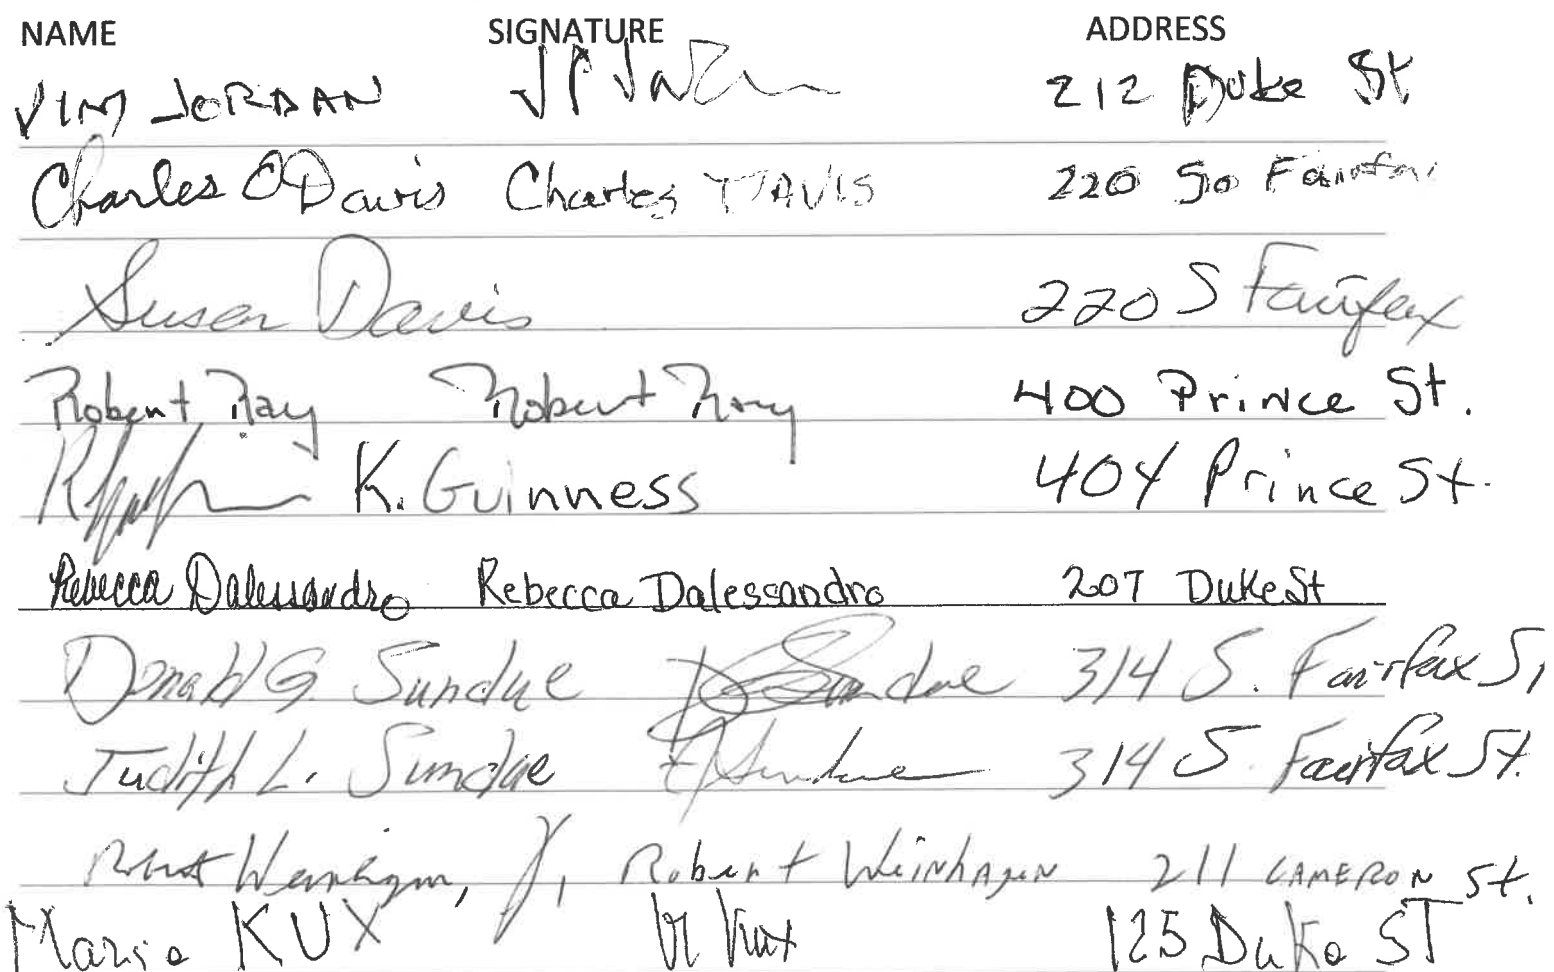 NAME SIGNATURE ADDRESS
JIM JORDAN 212 Duke St
Charles E Davis Charles DAVIS 220 So Fairfax
Susan Davis 220 S Fairfax
Robert Ray Robert Ray 400 Prince St.
K. Guinness 404 Prince St.
Rebecca Dalessandro Rebecca Dalessandro 207 Duke St
Donald G. Sundue Sundue 314 S. Fairfax St
Judith L. Sundue Sundue 314 S. Fairfax St.
Robert Weinhagen, Jr, Robert Weinhagen 211 CAMERON St.
Maria KUX Kux 125 Duke ST